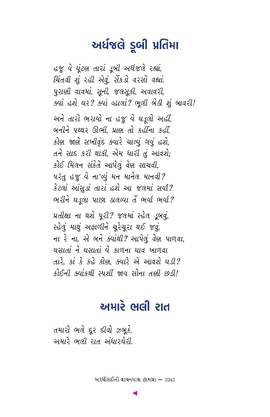 અર્ધજલે ડૂબી પ્રતિમા
હજુ બે ઘૂંટણ તારાં ડૂબી અર્ધજલે રહ્યાં,
ચિંતવી શું રહી એવું, સૈંકડો વરસો વહ્યાં
પુરાણી વાવમાં, સૂની, જલસૂકી, અવાવરી.
ક્યાં હશે ઘર? ક્યાં વ્હાલાં? ભૂલી બેઠી શું બાવરી!
અને તારો ભરાયો ના હજુ બે ઘડૂલો અહીં.
બનીને પથ્થર ઊભી, પ્રાણ તો કહીંના કહીં.
કોણ જાણે સખીવૃંદ ક્યારે ચાલ્યું ગયું હશે,
તને સાદ કરી થાકી, એમ ધારી તું આવશે;
કોઈ મિલન સંકેતે આપેલું વેણ સાચવી.
પરંતુ હજુ વે ના'વ્યું મન માનેલ માનવી?
કેટલાં આંસુડાં તારાં હશે આ જલમાં સર્યાં?
ભરીને ઘડૂલા પાછા ઠાલવ્યા તેં ભર્યા ભર્યા?
પ્રતીક્ષા ના થશે પૂરી? જલમાં રહેલ ડૂબવું,
રહેલું માથું અફાળીને ચૂરેચૂરા થઈ જવું.
ના રે ના, એ બને ક્યાંથી? આપેલું વેણ પાળવા,
ઘસાતાં ને ઘસાતાં વે કાળના ઘાવ ખાળવા
તારે, કાં કે કહે કોણ, ક્યારે એ આવશે ઘડી?
કોઈની ક્યાંકથી સ્પર્શી જાવ સોના તણી છડી!
અમારે ભલી રાત
તમારો ભલે દૂર દીવો ઝબૂકે.
અમારે ભલી રાત અંધારઘેરી.
અરધીસદીની વાચનયાત્રા — 2042